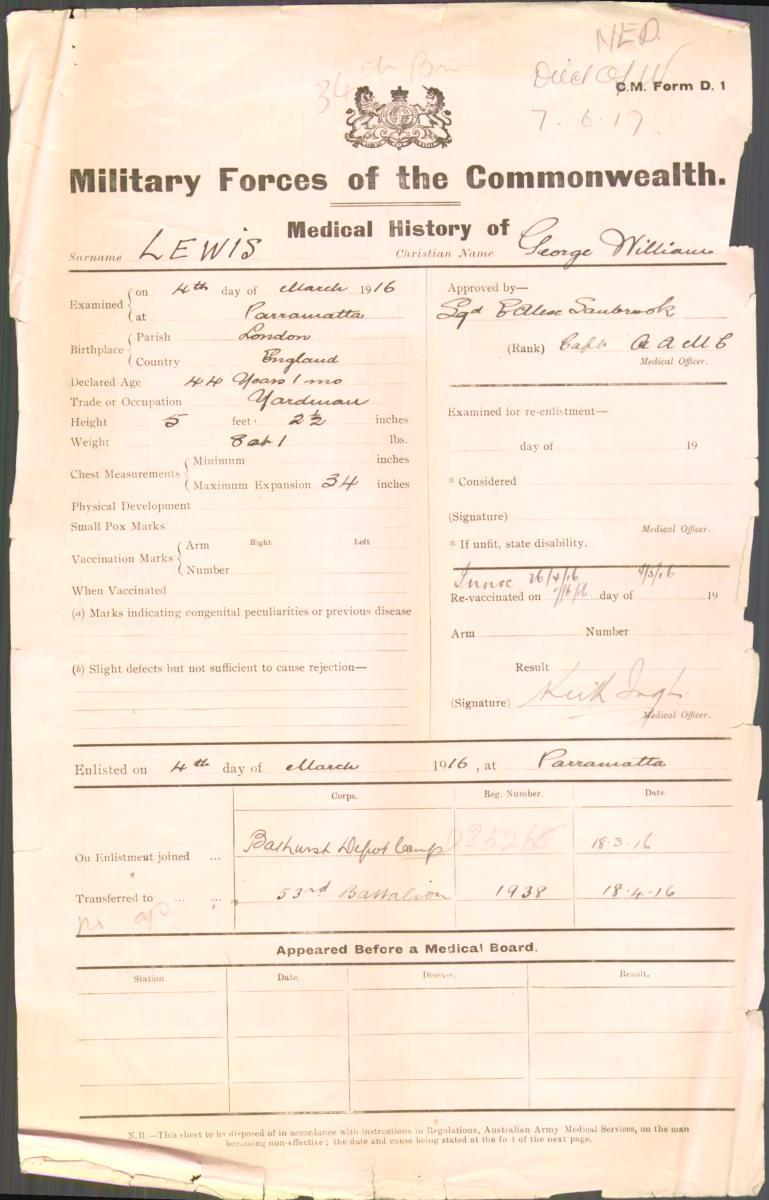 NED.
34th Bn
Died Of W
C.M. Form D. 1
7.6.17.
Military Forces of the Commonwealth.
Medical History of
Surname LEWIS Christian Name George William
Examined on 4th day of March 1916
at Parramatta
Birthplace Parish London
Country England
Declared Age 44 Years 1 mo
Trade or Occupation Yardman
Height 5 feet 2½ inches
Weight 8 st 1 lbs.
Chest Measurements Minimum inches
Maximum Expansion 34 inches
Physical Development
Small Pox Marks
Vaccination Marks Arm Right Left
Number
When Vaccinated
(a) Marks indicating congenital peculiarities or previous disease
(b) Slight defects but not sufficient to cause rejection—
Approved by—
Sgd
(Rank) Capt A A M C
Medical Officer.
Examined for re-enlistment—
day of 19
* Considered
(Signature)
Medical Officer.
* If unfit, state disability.
Innoc 26/4/16 4/5/16
Re-vaccinated on day of 19
Arm Number
Result
(Signature) Keith
Medical Officer.
Enlisted on 4th day of March 1916, at Parramatta
Corps. Reg. Number. Date
On Enlistment joined ... Bathurst Depot Camp 18-3-16
Transferred to ... ... 53rd Battalion 1938 18-4-16
Appeared Before a Medical Board.
Station. Date. Disease. Result.
N.B.—This sheet to be disposed of in accordance with instructions in Regulations, Australian Army Medical Services, on the man
becoming non-effective; the date and cause being stated at the foot of the next page.